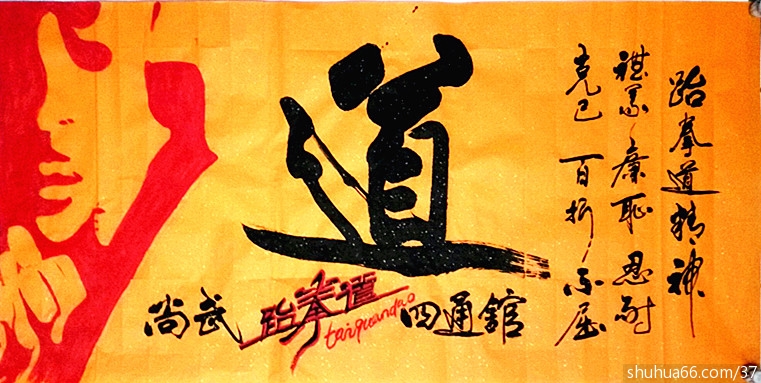 跆拳道精神
禮義廉恥 忍耐
克己 百折不屈
道
尚武跆拳道四通館
taiquandao
shuhua66.com/37